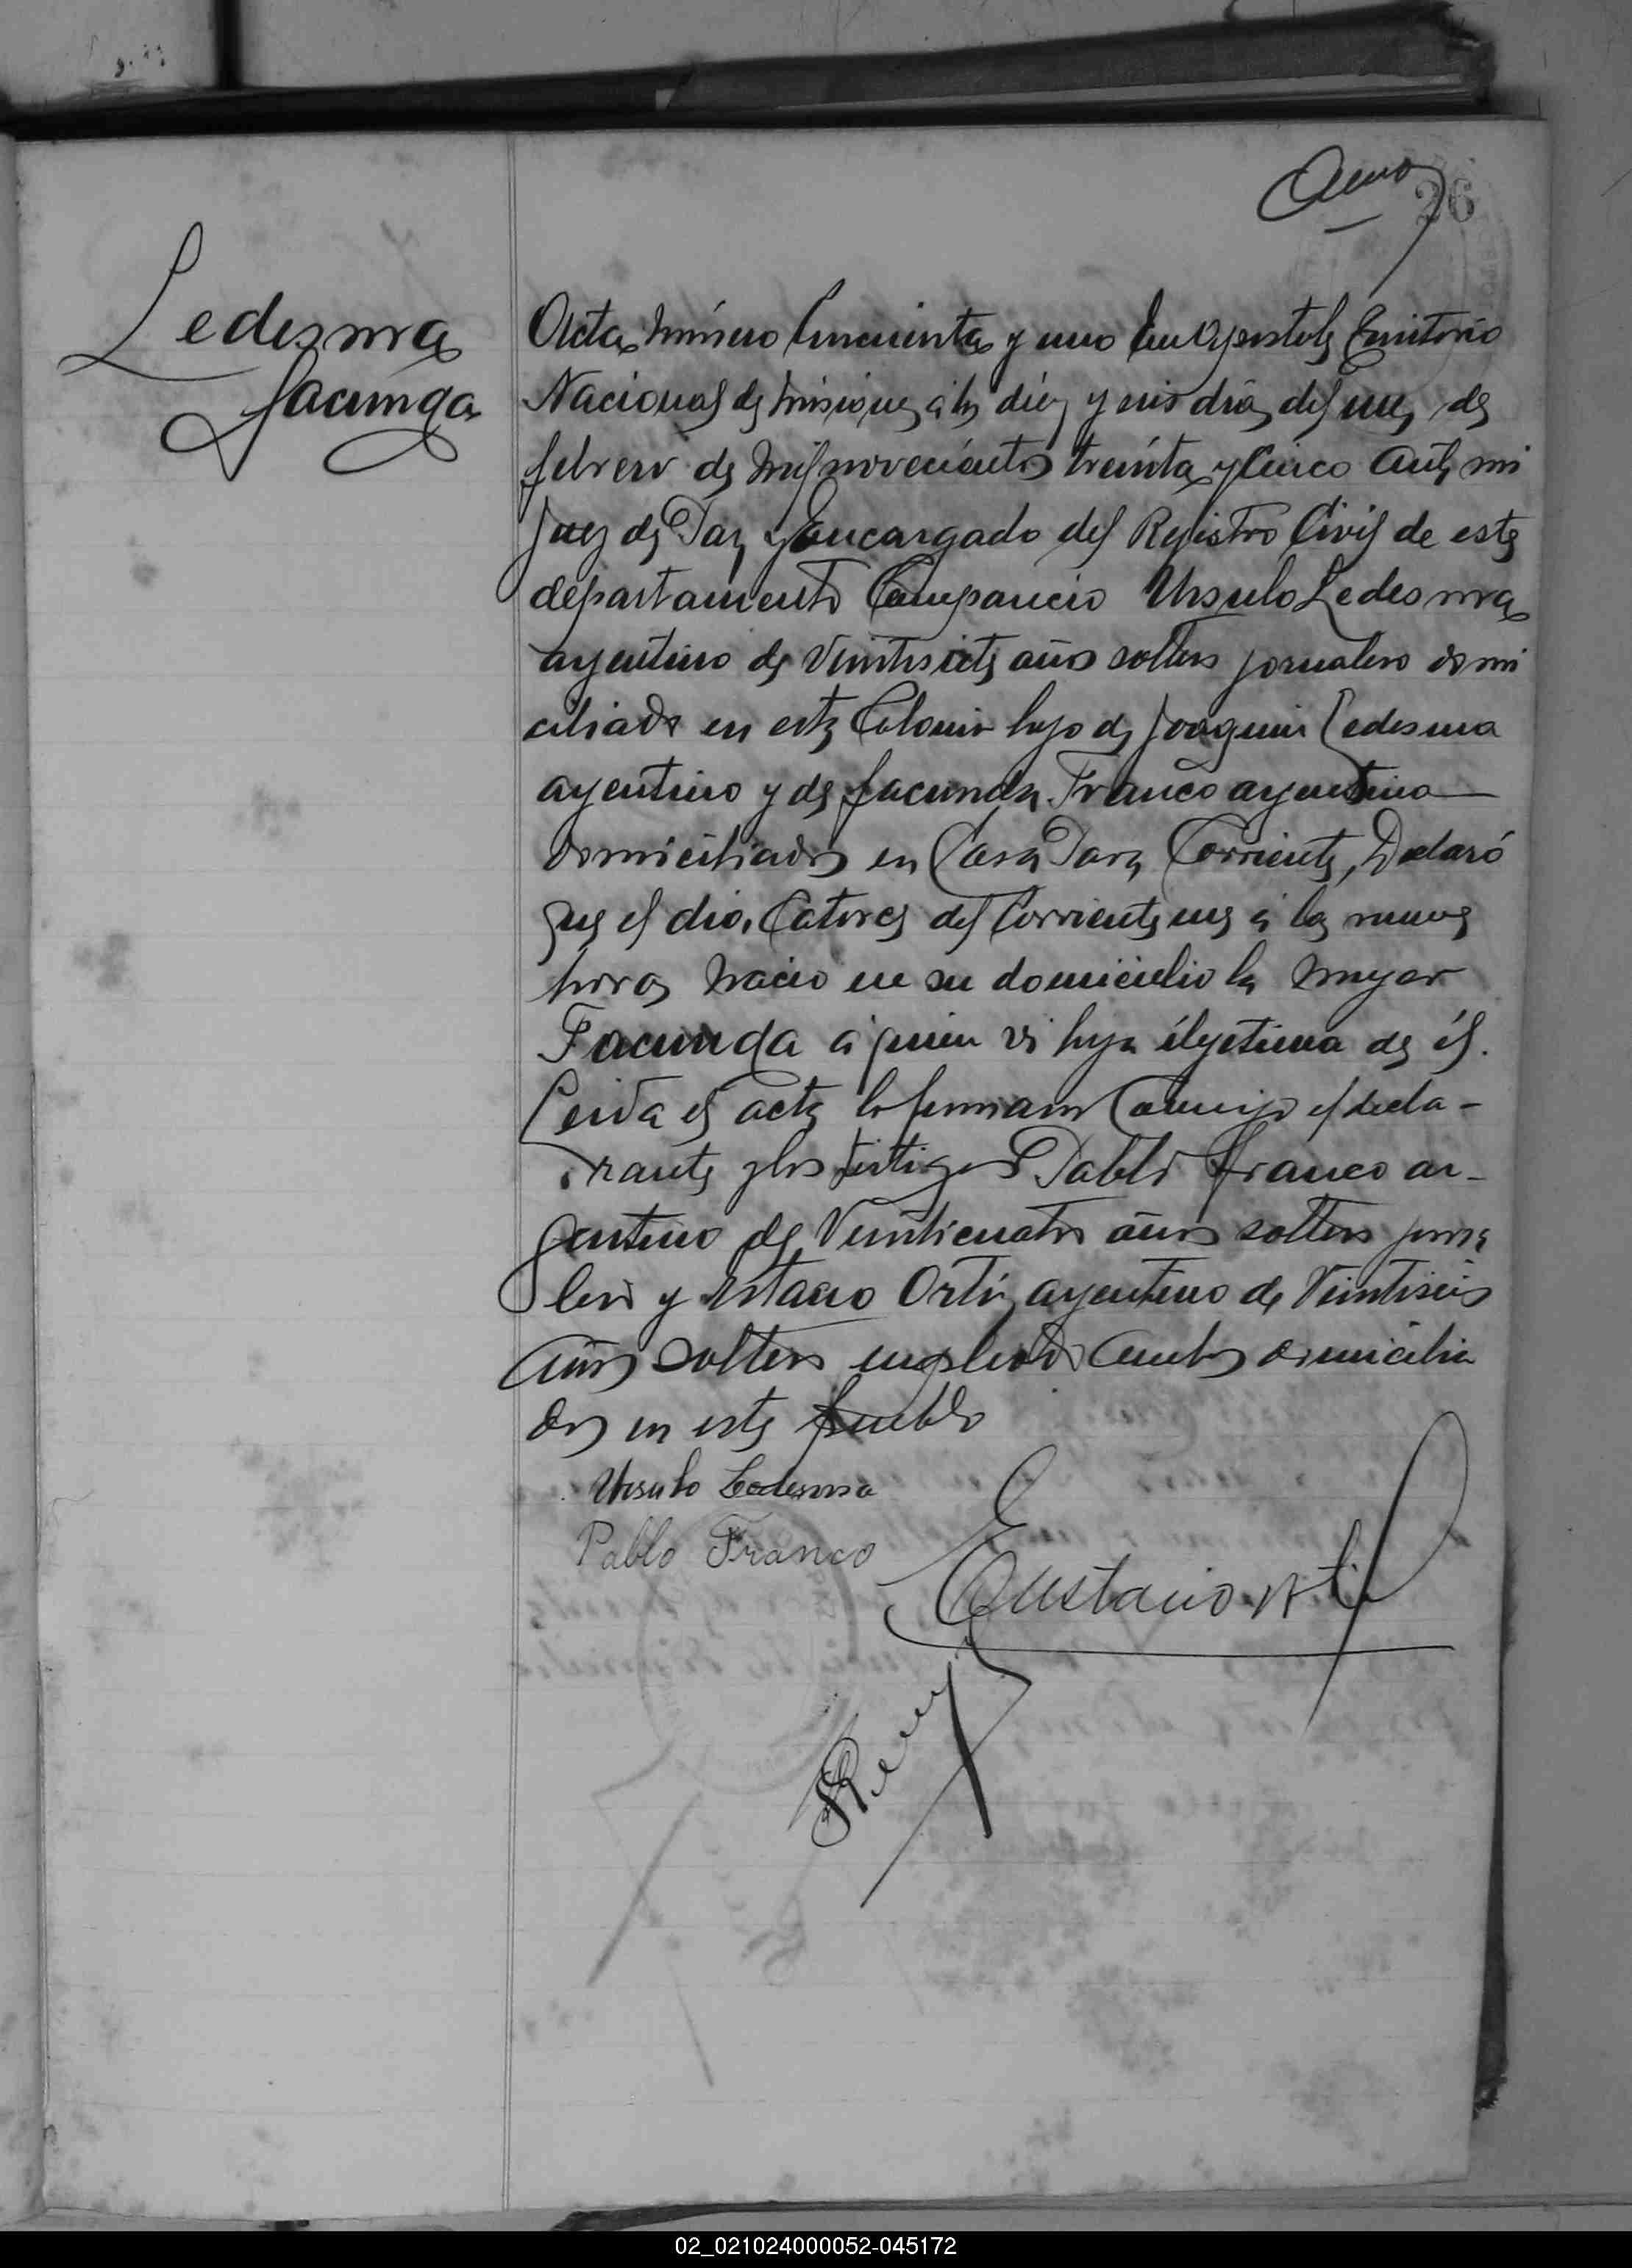 26
Ledesma
Facunda
Acta número Cincuenta y uno En Apostoles Territorio
Nacional de Misiones á los diez y seis dias del mes de
febrero de mil novecientos treinta y cinco Ante mi
Juez de Paz y Encargado del Registro Civil de este
departamento Comparecio Ursulo Ledesma
argentino de Veintisiete años soltero jornalero domi
ciliado en esta Colonia hijo de Joaquin Ledesma
argentino y de Facunda Franco argentina
domiciliados en Casa Para Corrientes, Declaró
que el dia Catorce del Corriente mes á las nueve
horas nacio en su domicilio la mujer
Facunda á quien vi hija ilegetima de él.
Leida el acta la firmaron Conmigo el decla-
rante y los testigos Pablo Franco ar-
gentino de Veinticuatro años soltero jorna
lero y Estacio Ortiz argentino de Veintiseis
años soltero empleado Ambos domicilia
dos en este pueblo
Ursulo Ledesma
Pablo Franco
Eustacio
02_021024000052-045172